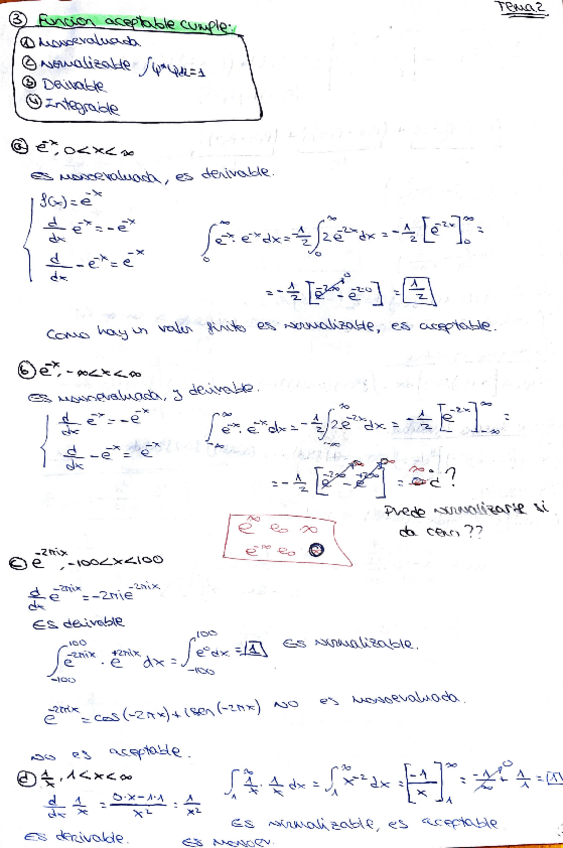 Tema 2
③ Función aceptable cumple:
① Monoevaluada
② Normalizable ∫ψ*ψdx=1
③ Derivable
④ Integrable
ⓐ e^-x, 0<x<∞
Es monoevaluada, es derivable.
f(x)=e^-x
d/dx e^-x = -e^-x
d/dx -e^-x = e^-x
∫₀^∞ e^-x · e^-x dx = -1/2 ∫₀^∞ 2e^-2x dx = -1/2 [e^-2x]₀^∞ =
= -1/2 [e^-2∞ - e^-2·0] = 1/2
Como hay un valor finito es normalizable, es aceptable.
ⓑ e^-x, -∞<x<∞
Es monoevaluada, y derivable.
d/dx e^-x = -e^-x
d/dx -e^-x = e^-x
∫_-∞^∞ e^-x · e^-x dx = -1/2 ∫_-∞^∞ 2e^-2x dx = -1/2 [e^-2x]_-∞^∞ =
= -1/2 [e^-2∞ - e^+2∞] = ∞ ¿?
Puede normalizarse si
da cero??
e^∞ es ∞
e^-∞ es 0
ⓒ e^-2πix, -100<x<100
d/dx e^-2πix = -2πi e^-2πix
Es derivable
∫_-100^100 e^-2πix · e^+2πix dx = ∫_-100^100 e^0 dx = 1 Es normalizable.
e^-2πix = cos(-2πx)+i sen(-2πx) NO es monoevaluada.
No es aceptable.
ⓓ 1/x, 1<x<∞
∫₁^∞ 1/x · 1/x dx = ∫₁^∞ x^-2 dx = [-1/x]₁^∞ = -1/∞ + 1/1 = 1
d/dx 1/x = 0·x-1·1/x² = 1/x²
Es normalizable, es aceptable.
Es derivable. Es monoev.